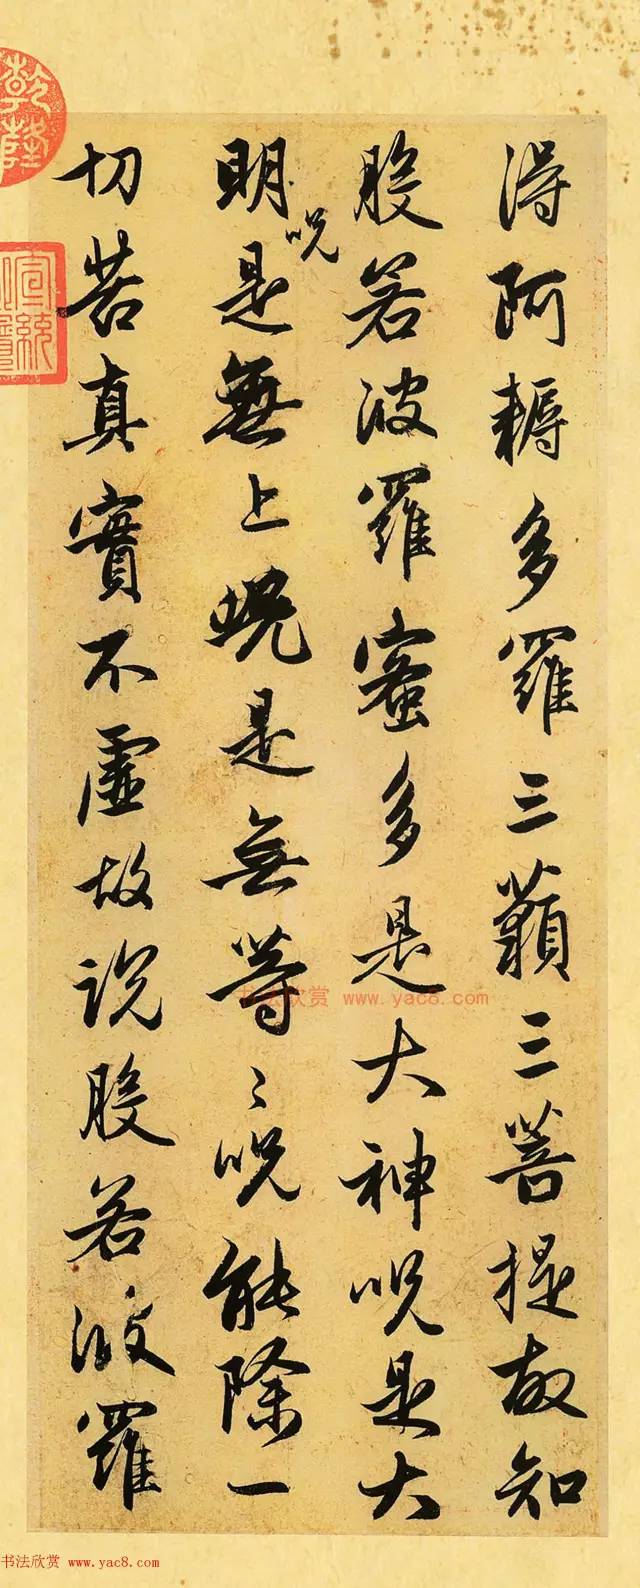 得阿耨多羅三藐三菩提故知
般若波羅蜜多是大神呪是大
明呪是無上呪是無等〻呪能除一
切苦真實不虛故說般若波羅
乾隆
宣統
书法欣赏 www.yac8.com
书法欣赏 www.yac8.com